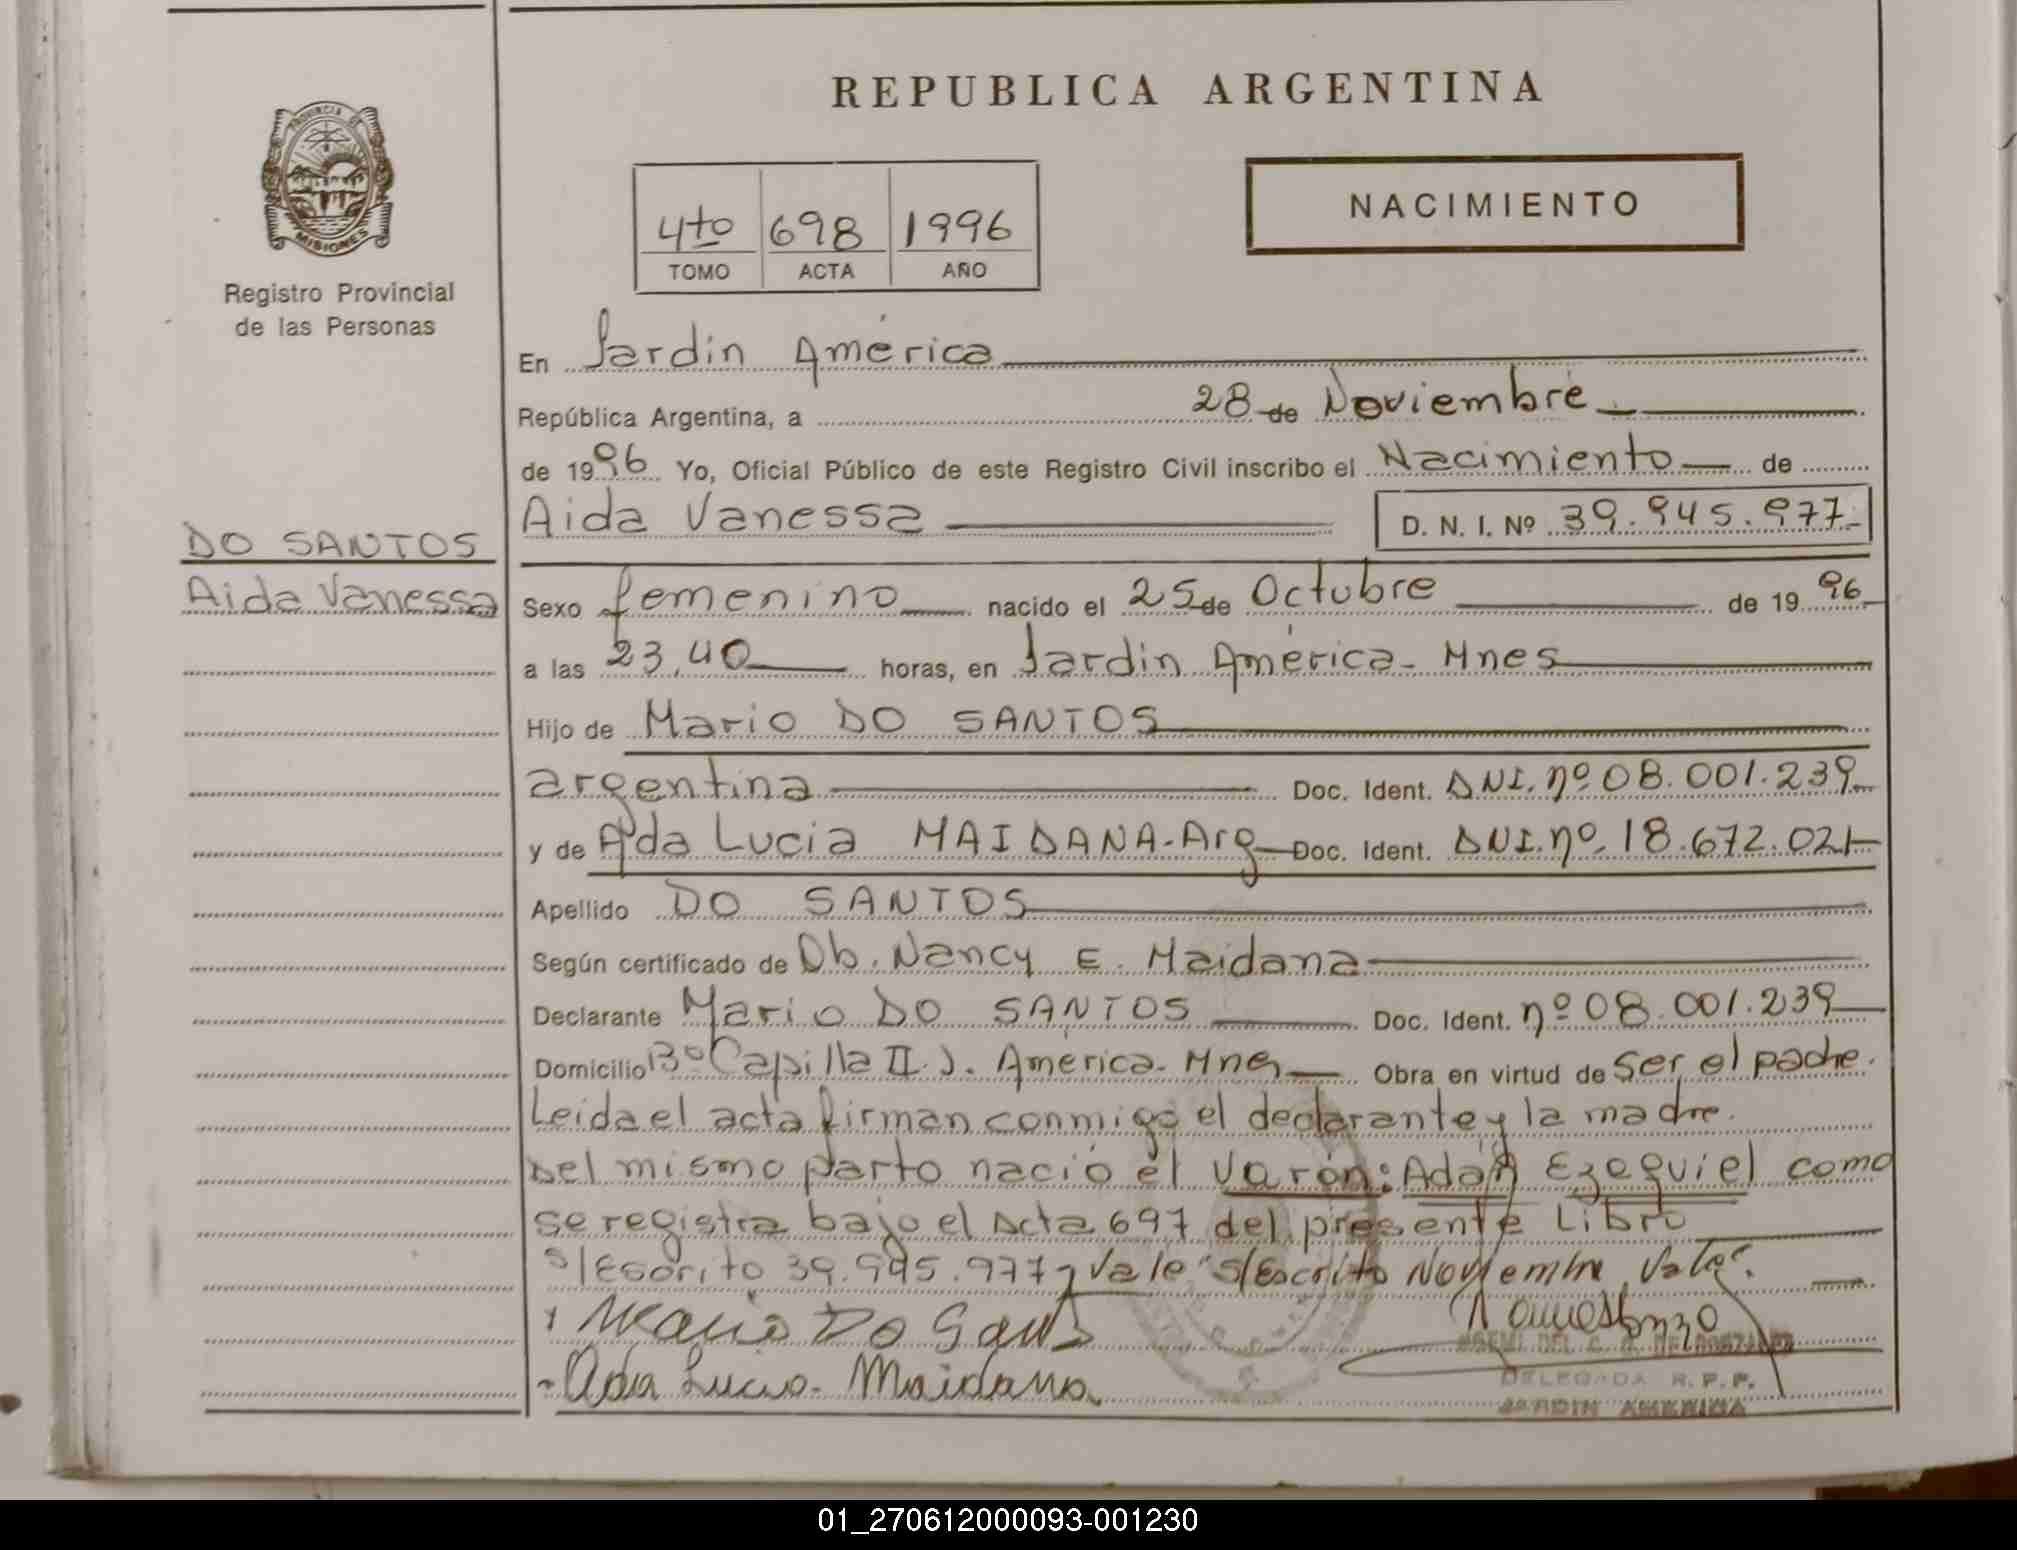 REPUBLICA ARGENTINA
PROVINCIA DE
MISIONES
Registro Provincial
de las Personas
NACIMIENTO
4to 698 1996
TOMO ACTA AÑO
En Jardin América
República Argentina, a 28 de Noviembre
de 1996 Yo, Oficial Público de este Registro Civil inscribo el Nacimiento de
Aida Vanessa D. N. I. Nº 39.945.977
DO SANTOS
Aida Vanessa
Sexo femenino nacido el 25 de Octubre de 1996
a las 23,40 horas, en Jardin América - Mnes
Hijo de Mario DO SANTOS
argentina Doc. Ident. DNI. nº 08.001.239
y de Ada Lucia MAIDANA - Arg Doc. Ident. DNI. nº. 18.672.021
Apellido DO SANTOS
Según certificado de Ob. Nancy E. Maidana
Declarante Mario DO SANTOS Doc. Ident. nº 08.001.239
Domicilio Bº Capilla II. J. América - Mnes Obra en virtud de ser el padre.
Leida el acta firman conmigo el declarante y la madre.
Del mismo parto nació el varón: Adán Ezequiel como
se registra bajo el Acta 697 del presente Libro
s/Escrito 39.945.977 Vale s/Escrito Noviembre Vale
Mario Do Sant
Ada Lucia Maidana
DELEGADA R.P.P.
JARDIN AMERICA
01_270612000093-001230